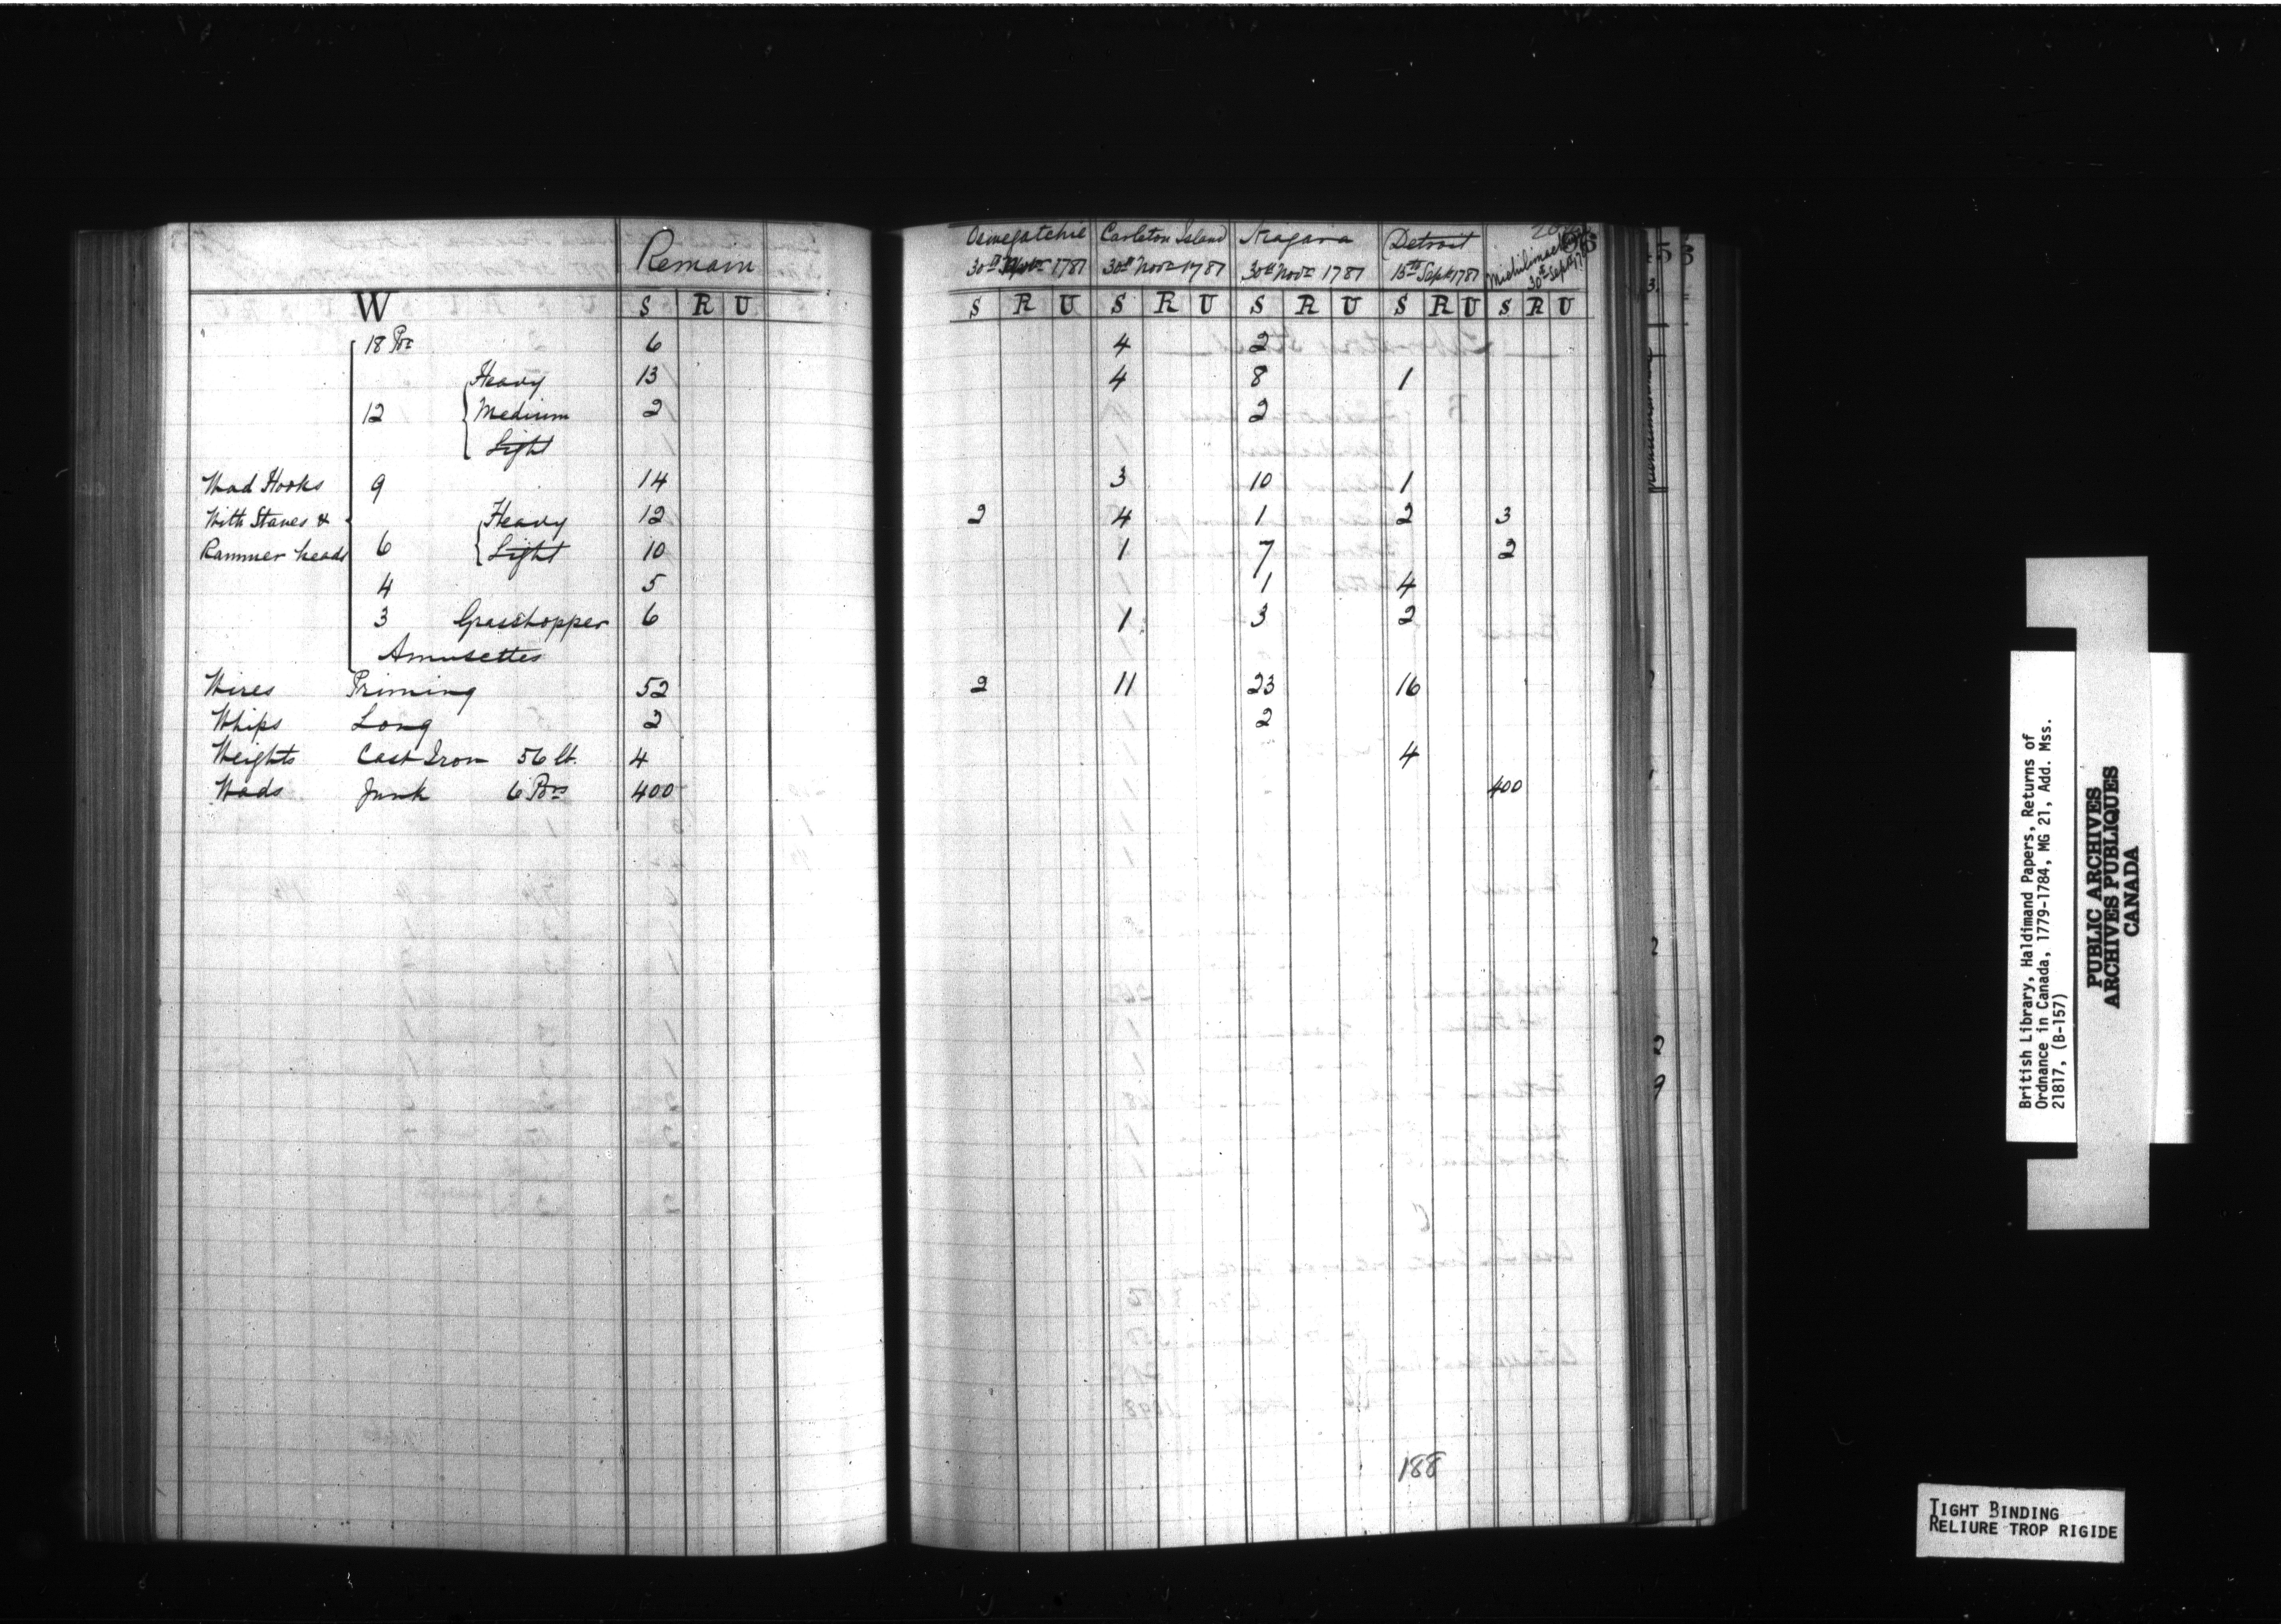 Remain
W S R U
18 Pr 6
Heavy 13
12 Medium 2
Light
Wad Hooks 9 14
With Staves & Heavy 12
Rammer heads 6 Light 10
4 5
3 Grasshopper 6
Amusettes
Wires Priming 52
Whips Long 2
Weights Cast Iron 56 lb. 4
Wads Junk 6 Prs 400
Oswegatchie Carleton Island Niagara Detroit Michilimac
30th Novr 1781 30th Novr 1781 30th Novr 1781 15th Sept 1781 30th Sept
S R U S R U S R U S R U S R U
4 2
4 8 1
2
3 10 1
2 4 1 2 3
1 7 2
1 4
1 3 2
2 11 23 16
2
4
400
188
British Library, Haldimand Papers, Returns of
Ordnance in Canada, 1779-1784, MG 21, Add. Mss.
21817, (B-157)
PUBLIC ARCHIVES
ARCHIVES PUBLIQUES
CANADA
TIGHT BINDING
RELIURE TROP RIGIDE